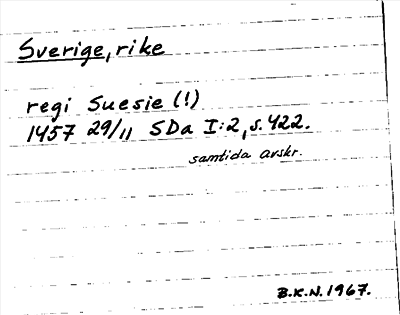 Sverige, rike
regi Suesie (!)
1457 29/11 SDa I:2, s. 422.
samtida avskr.
B.K.N. 1967.